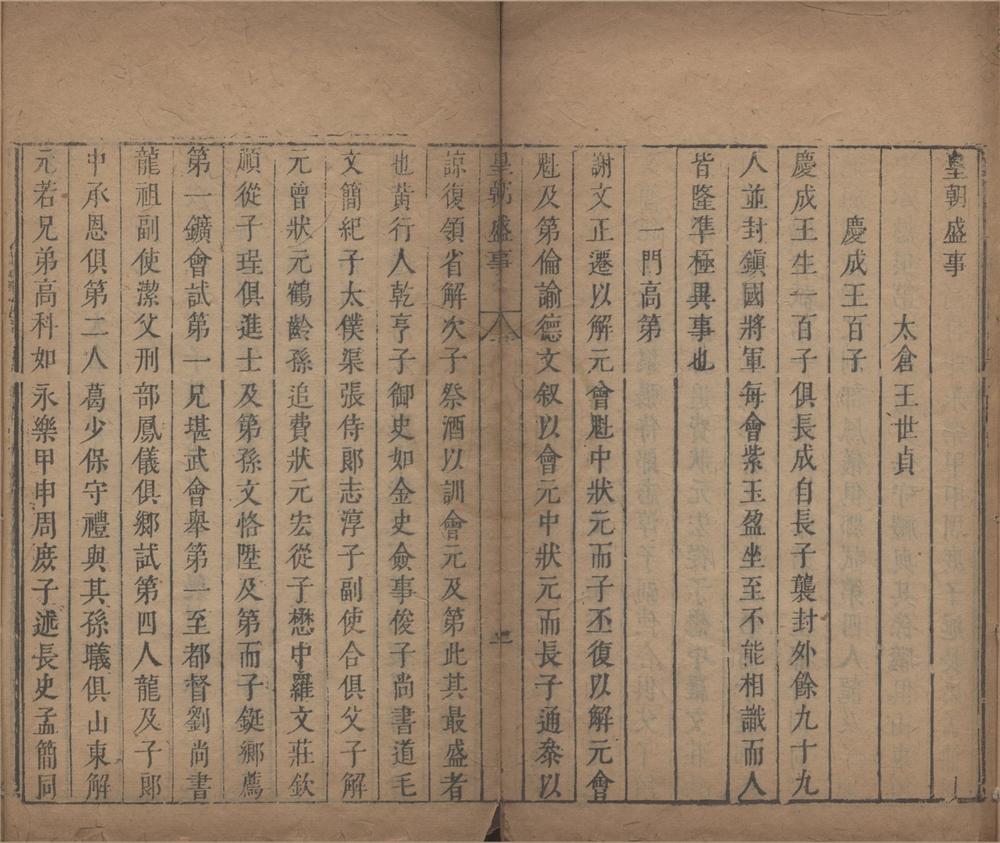 皇朝盛事
太倉王世貞
慶成王百子
慶成王生一百子俱長成自長子襲封外餘九十九
人並封鎭國將軍每會紫玉盈坐至不能相識而人
皆隆準極異事也
一門高第
謝文正遷以解元會魁中狀元而子丕復以解元會
魁及第倫諭德文叙以會元中狀元而長子通叅以
皇朝盛事
諒復領省解次子祭酒以訓會元及第此其最盛者
也黃行人乾亨子御史如金史僉事俊子尚書道毛
文簡紀子太僕渠張侍郎志淳子副使合俱父子解
元曾狀元鶴齡孫追費狀元宏從子懋中羅文莊欽
順從子珵俱進士及第孫文恪陞及第而子鋌鄉薦
第一鑛會試第一兄堪武會舉第一至都督劉尚書
龍祖副使潔父刑部鳳儀俱鄉試第四人龍及子郎
中承恩俱第二人葛少保守禮與其孫曦俱山東解
元若兄弟高科如永樂甲申周庶子述長史孟簡同